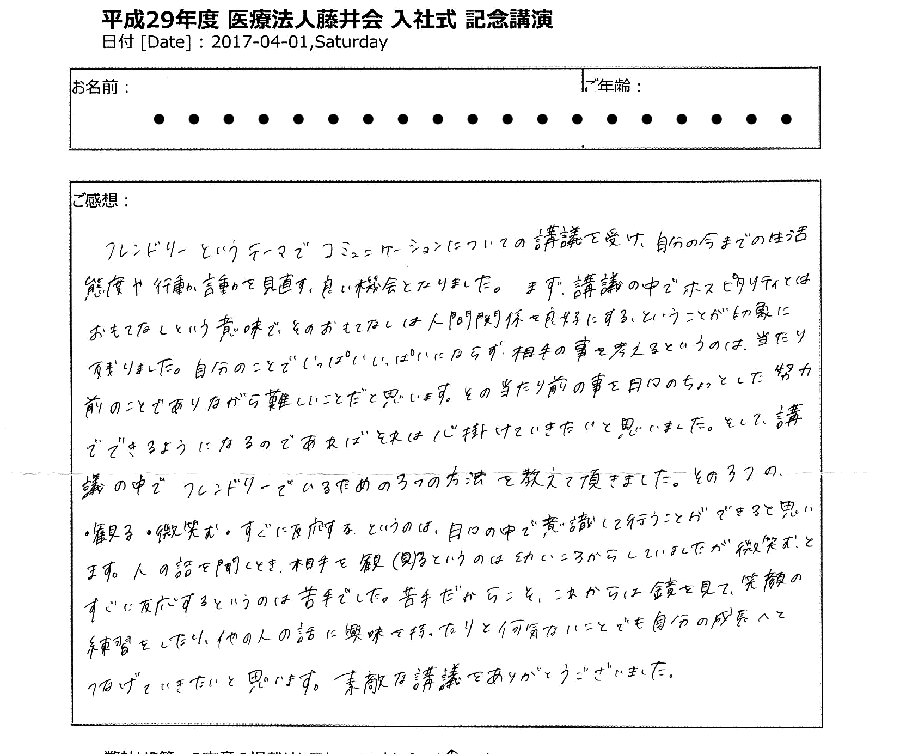 平成29年度 医療法人藤井会 入社式 記念講演
日付 [Date] : 2017-04-01,Saturday
お名前：
ご年齢：
ご感想：
フレンドリーというテーマでコミュニケーションについての講議を受け、自分の今までの生活
態度や行動、言動を見直す、良い機会となりました。まず、講議の中でホスピタリティとは
おもてなしという意味で、そのおもてなしは人間関係を良好にする、ということが印象に
残りました。自分のことでいっぱいいっぱいにならず相手の事を考えるというのは、当たり
前のことでありながら難しいことだと思います。その当たり前の事を日々のちょっとした努力
でできるようになるのであればそれは心掛けていきたいと思いました。そして、講
議の中でフレンドリーでいるための3つの方法を教えて頂きました。その3つの、
・観る・微笑む・すぐに反応する、というのは、日々の中で意識して行うことができると思い
ます。人の話を聞くとき、相手を観るというのは幼いころからしていましたが微笑む、と
すぐに反応するというのは苦手でした。苦手だからこそ、これからは鏡を見て、笑顔の
練習をしたり、他の人の話に興味を持ったりと何気ないことでも自分の成長へと
つなげていきたいと思います。素敵な講議をありがとうございました。